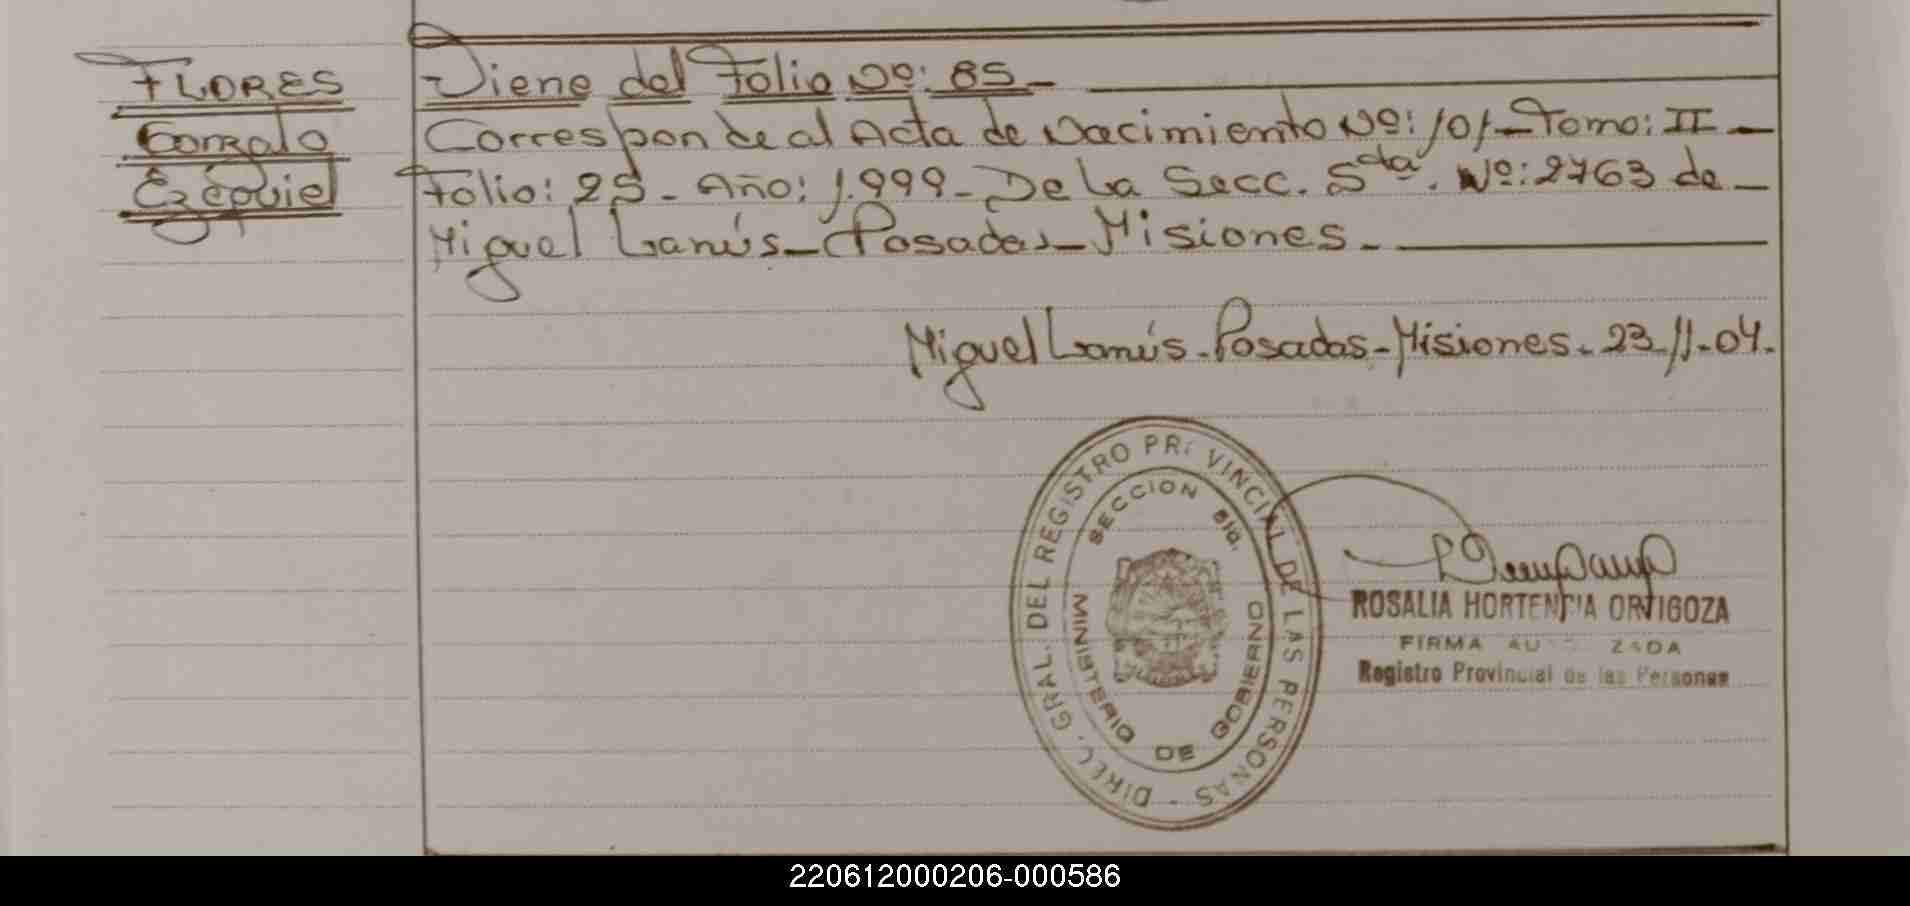 FLORES
Gonzalo
Ezequiel
Viene del Folio Nº: 85-
Corresponde al Acta de Nacimiento Nº: 101- Tomo: II -
Folio: 25 - Año: 1.999 - De La Secc. 5ta. Nº: 2763 de -
Miguel Lanús - Posadas - Misiones -
Miguel Lanús - Posadas - Misiones - 23-11-04.
DIREC. GRAL. DEL REGISTRO PROVINCIAL DE LAS PERSONAS -
SECCION 5ta.
MINISTERIO DE GOBIERNO
ROSALIA HORTENCIA ORTIGOZA
FIRMA AU ZADA
Registro Provincial de las Personas
220612000206-000586